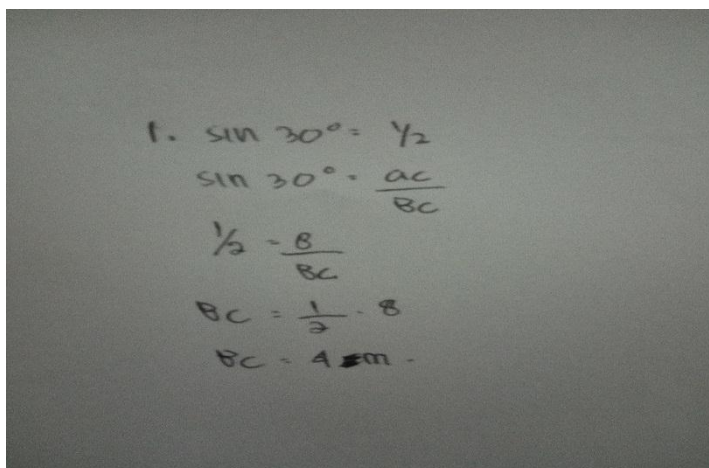 1. sin 30° = 1/2
sin 30° = ac/BC
1/2 = 8/BC
BC = 1/2 . 8
BC = 4 m.